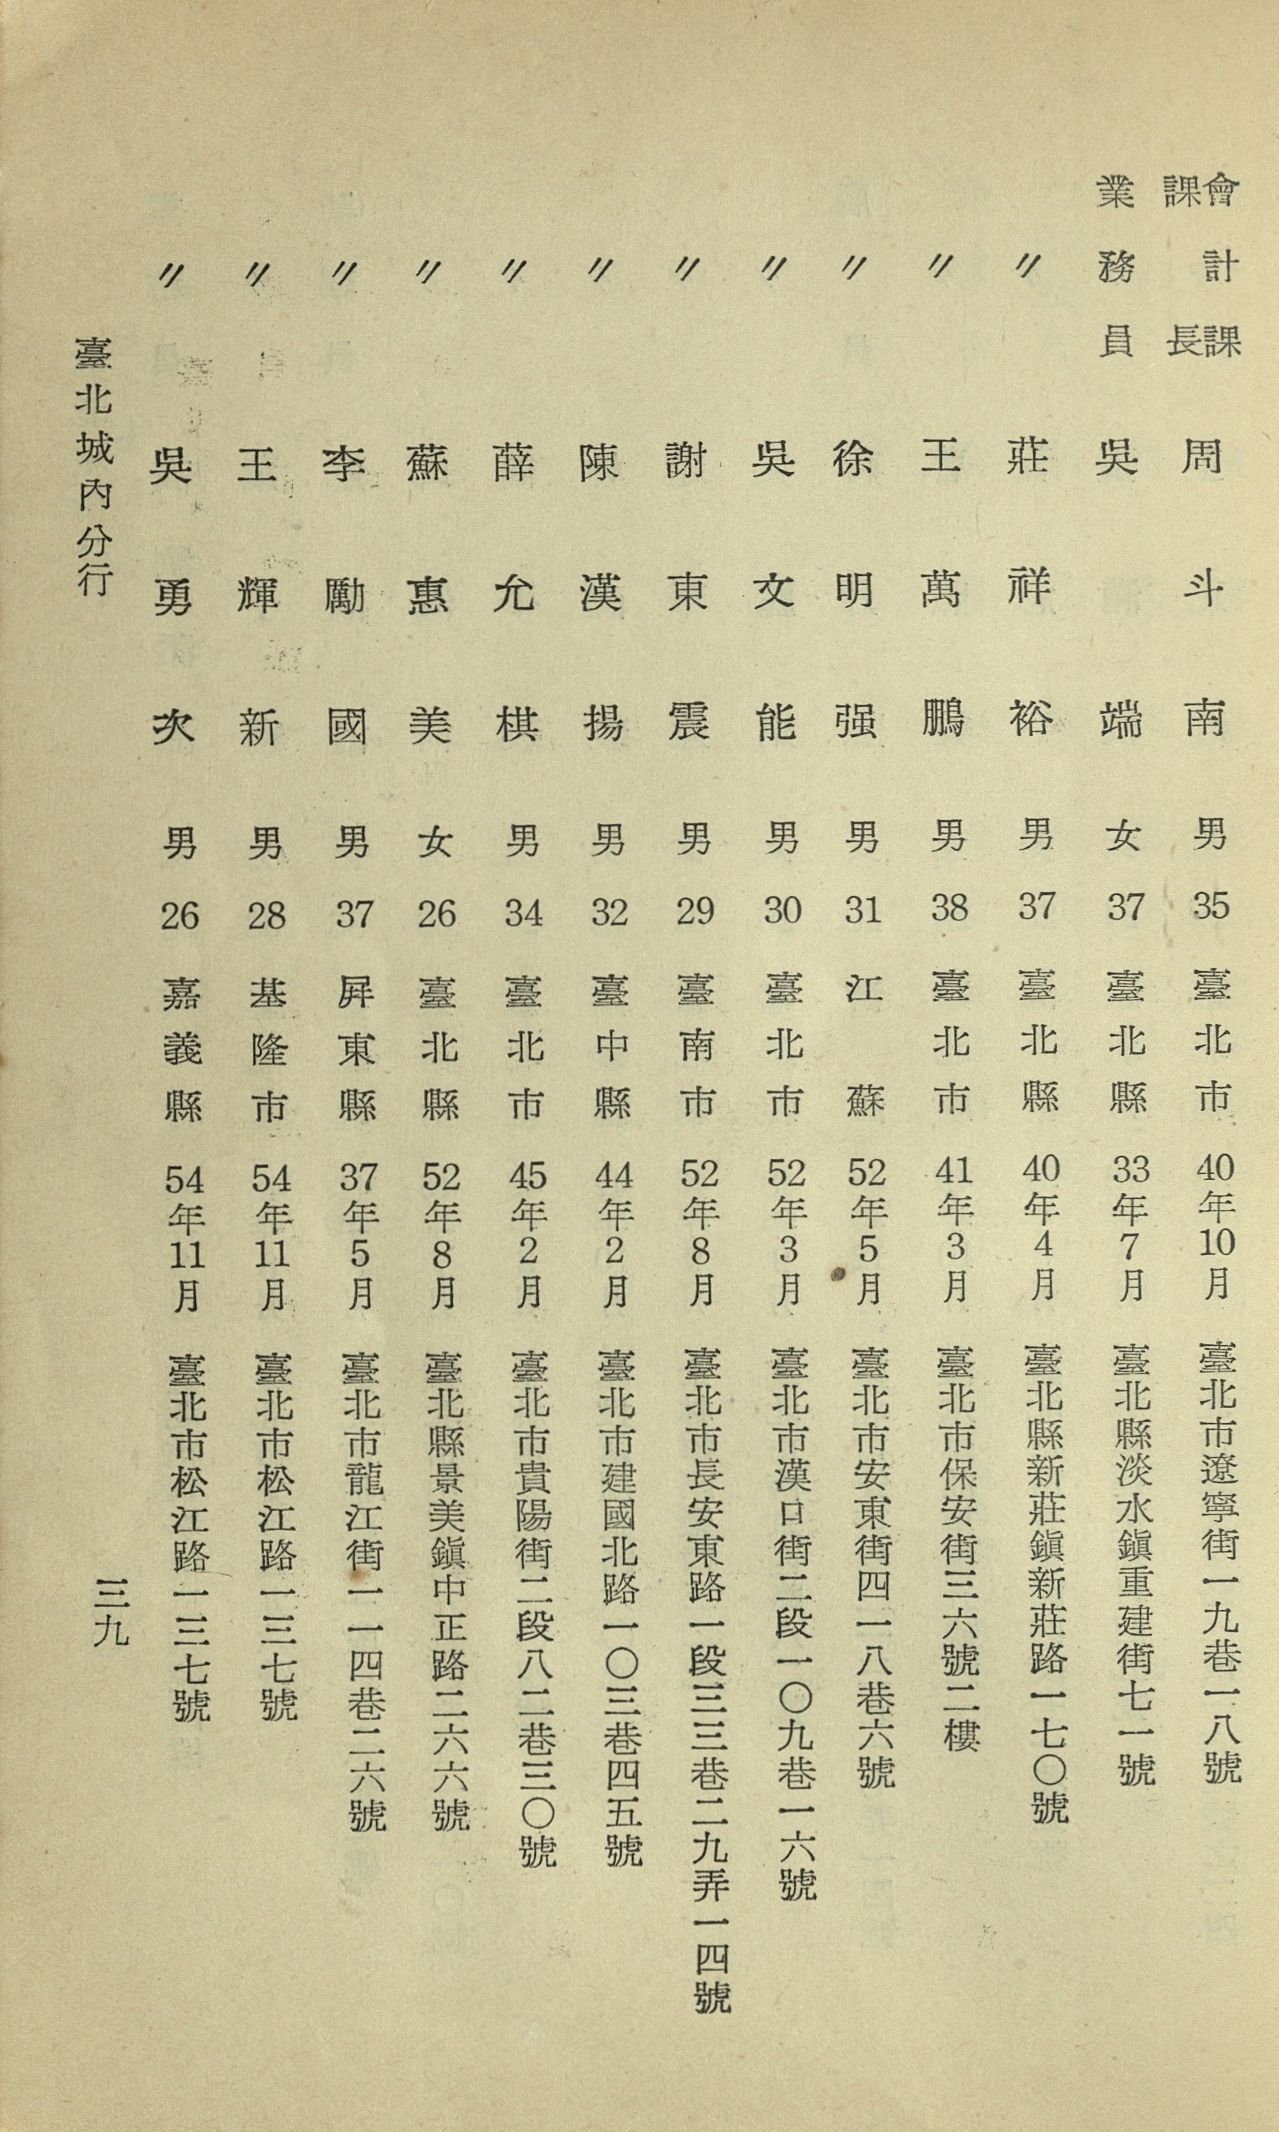 會計課課長 周斗南 男 35 臺北市 40年10月 臺北市遼寧街一九巷一八號
業務員 吳端 女 37 臺北縣 33年7月 臺北縣淡水鎭重建街七一號
〃 莊祥裕 男 37 臺北縣 40年4月 臺北縣新莊鎭新莊路一七〇號
〃 王萬鵬 男 38 臺北市 41年3月 臺北市保安街三六號二樓
〃 徐明强 男 31 江蘇 52年5月 臺北市安東街四一八巷六號
〃 吳文能 男 30 臺北市 52年3月 臺北市漢口街二段一〇九巷一六號
〃 謝東震 男 29 臺南市 52年8月 臺北市長安東路一段三三巷二九弄一四號
〃 陳漢揚 男 32 臺中縣 44年2月 臺北市建國北路一〇三巷四五號
〃 薛允棋 男 34 臺北市 45年2月 臺北市貴陽街二段八二巷三〇號
〃 蘇惠美 女 26 臺北縣 52年8月 臺北縣景美鎭中正路二六六號
〃 李勵國 男 37 屛東縣 37年5月 臺北市龍江街一一四巷二六號
〃 王輝新 男 28 基隆市 54年11月 臺北市松江路一三七號
〃 吳勇次 男 26 嘉義縣 54年11月 臺北市松江路一三七號
臺北城內分行
三九